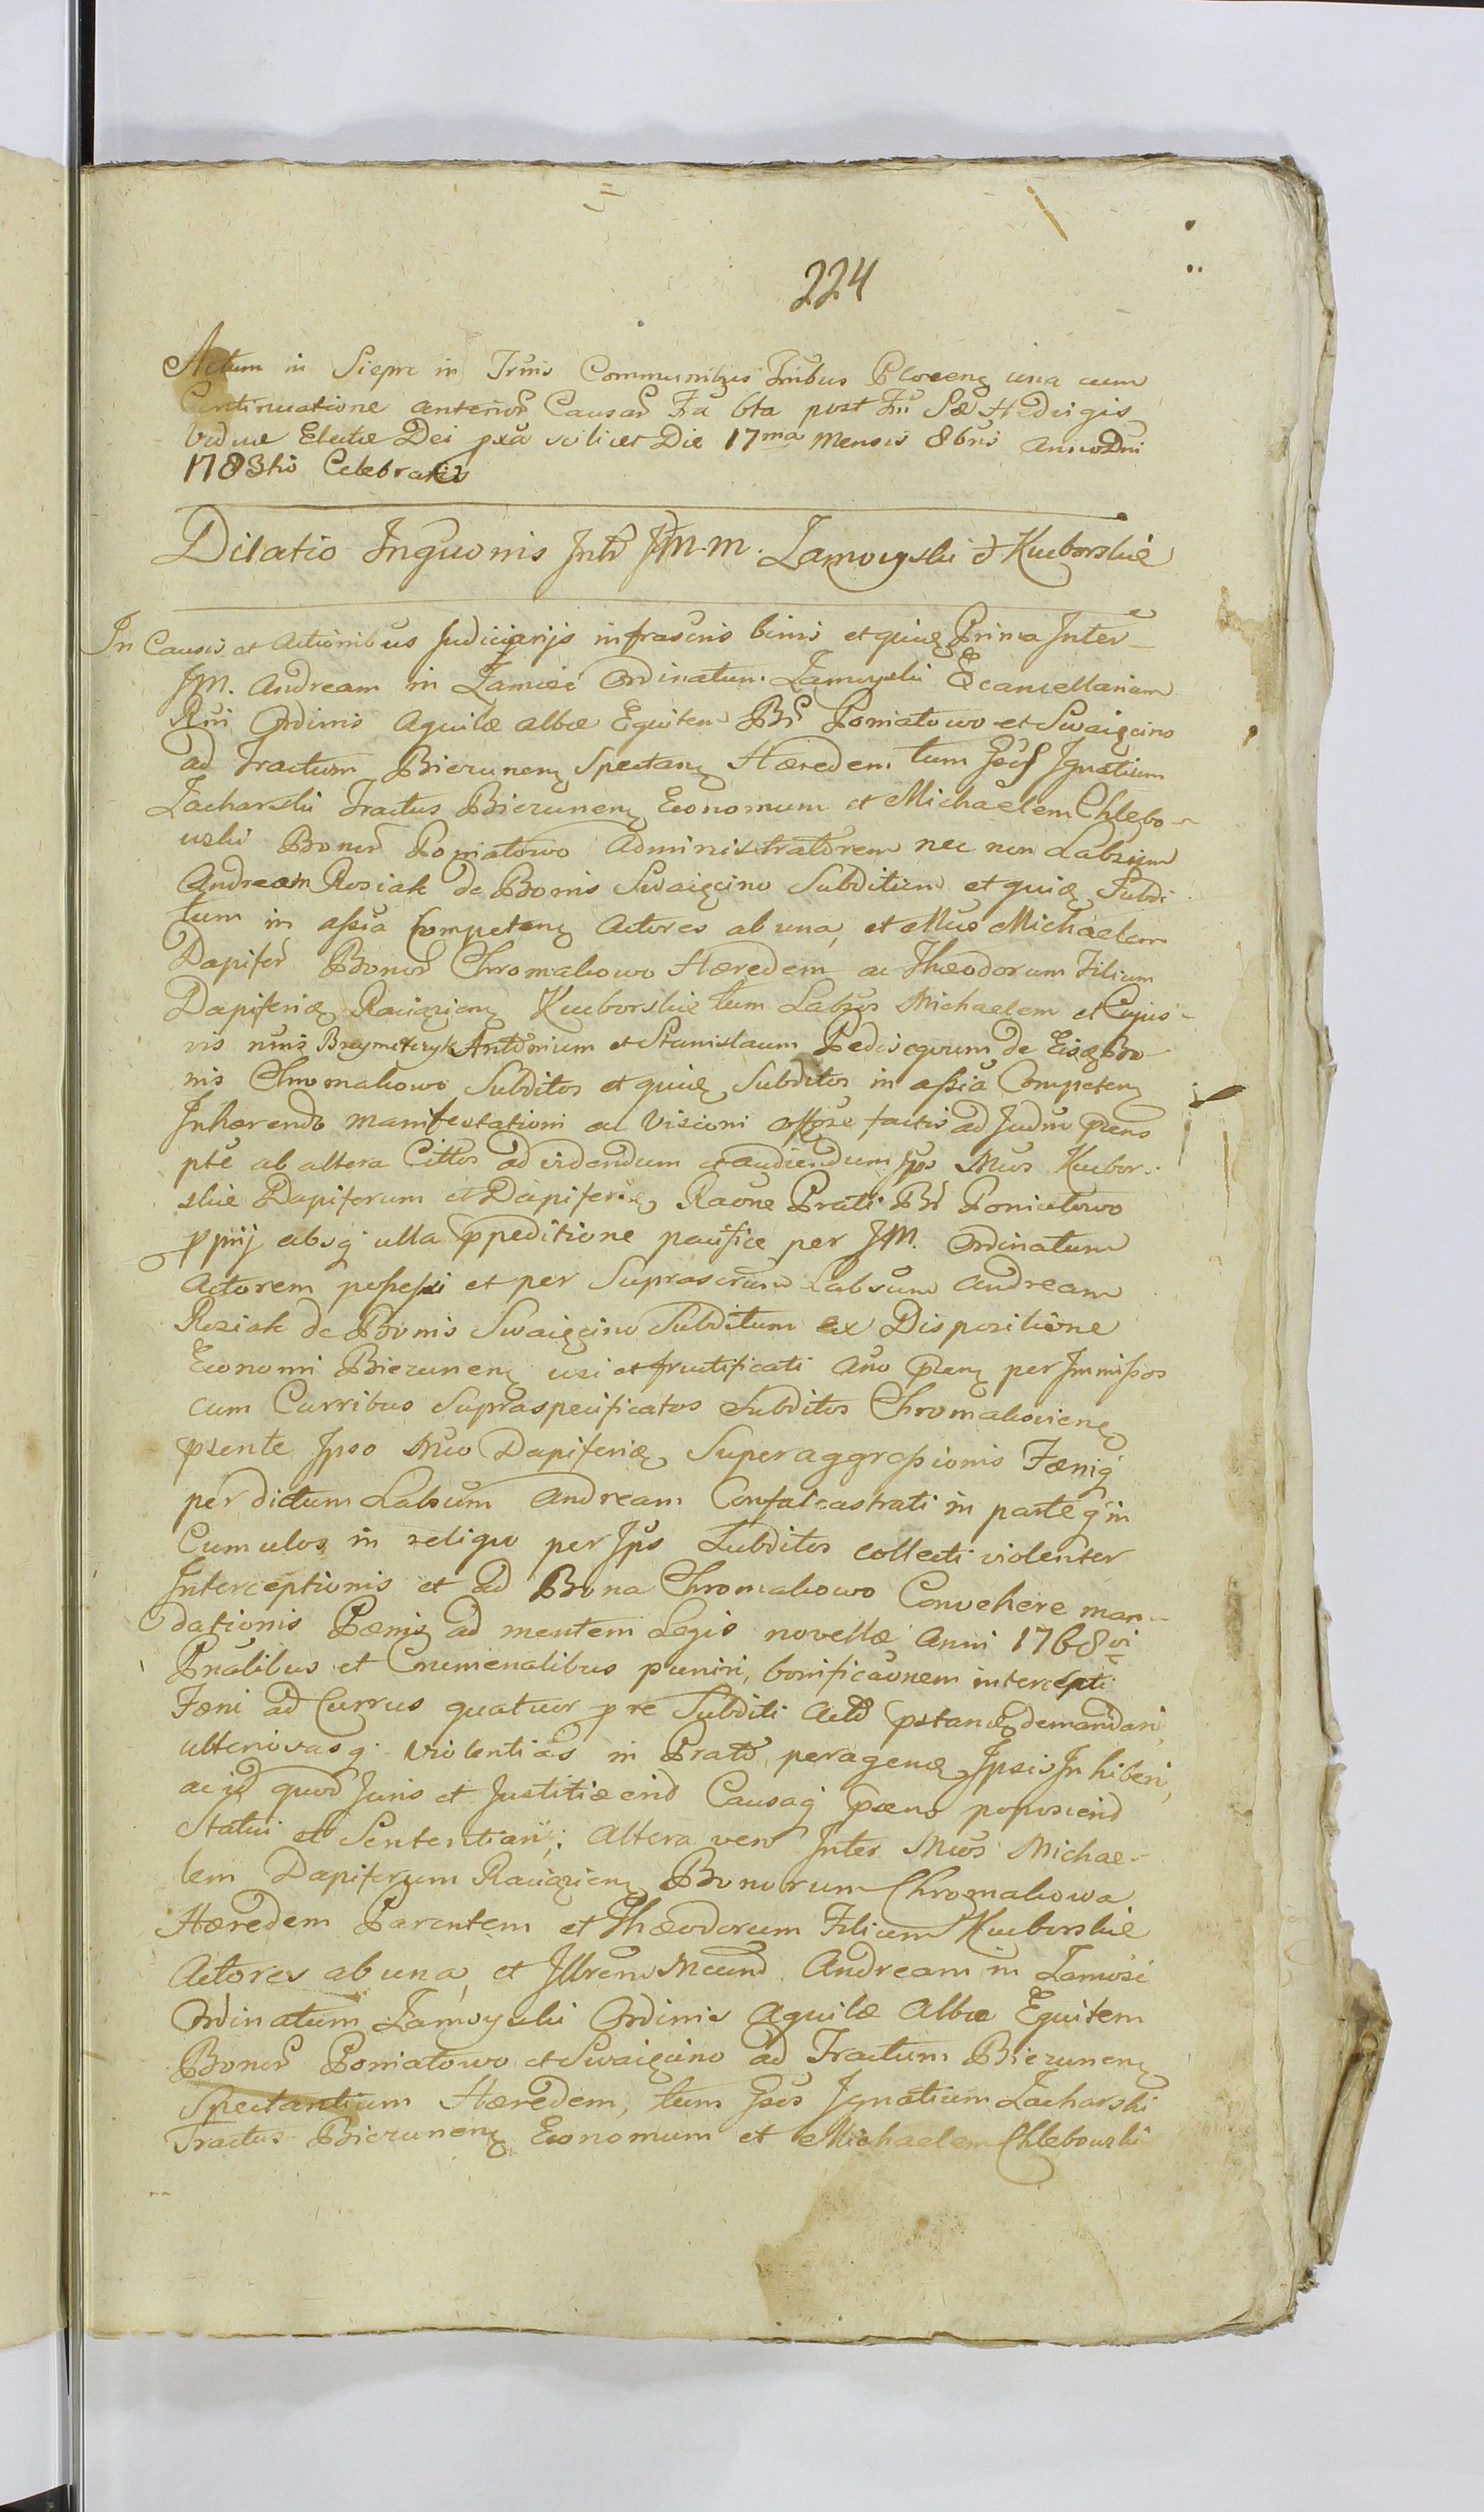 224
Actum in Siepre in Trnis Communibus Trribus Plocens una cum
Continuatione anterior Causar Fa 6ta post Fm Sæ Hedvigis
Viduæ Electæ Dei pxa scilicet Die 17ma Mensis 8bris Anno Dni
1783tio Celebratis
Dilatio Inqüonis Intr JMM. Zamoyski & Kuborskie
In Causis et Actionibus Judiciarijs infrascris binis et quius Prima Inter
JM. Andream in Zamość Ordinatum Zamoyski Excancellarium
Rni Ordinis Aquilæ albæ Equitem Br Poniatowo et Swaięcino
ad Tractum Bierunens Spectans Hæredem tum Gsos Ignatium
Zacharski Tractus Bierunens Economum et Michaelem Chlebo-
wski Bonor Poniatowo Administratorem nec non Labsum
Andream Rosiak de Bonis Swaięcino Subditum et quius Subdi
tum in assia Competens Actores ab una, et Mus Michaelem
Dapifer Bonor Chromakowo Hæredem ac Theodorum Filium
Dapiferis Raciąziens Kuborskie tum Labsos Michaelem et Cujus-
vis nuis Antonium et Stanislaum Pedissequum de Eisd Bo
nis Chromakowo Subditos et quius Subditos in assia Competens
Inhærendo manifestationi ac Visioni offose factis ad Judm præns
pte ab altera Cittos ad videndum et audiendum Ips Mus Kubor-
skie Dapiferum et Dapiferis Raone Prati Br Poniatowo
pprij absq ulla ppeditione pacifice per JM. Ordinatum
Actorem possessi et per Suprascrum Labsum Andream
Rosiak de Bonis Swaięcino Subditum ex Dispositione
Economi Bierunens usi et fructificati Ano præns per Immissos
cum Curribus Supraspecificatos Subditos Chromakoviens
psente Ipso Muo Dapiferis Superaggressionis Fæniq
per dictum Labsum Andream Confalcastrati in parte q in
Cumulos in reliquo per Ips Subditos collecti violenter
Interceptionis et ad Bona Chromakowo Convehere man-
dationis Pænis ad mentem Legis novellæ Anni 1768vi
Pnalibus et Crumenalibus puniri, bonificaonem intercepti
Fæni ad Currus quatuor pre Subditi Actor pstands demandari,
ulterioresq violentias in Prato peragends Ipsis Inhiberi,
ac id quod Juris et Justitiæ erid Causaq præns poposcerid
Statui et Sententiari; Altera vero Inter Mus Michae-
lem Dapiferum Raciąziens Bonorum Chromakowa
Hæredem Parentem et Theodorum Filium Kuborskie
Actores ab una, et Illrem Mcum Andream in Zamość
Ordinatum Zamoyski Ordinis Aquilæ Albæ Equitem
Bonor Poniatowo et Swaięcino ad Tractum Bierunens
Spectantium Hæredem, tum Gsos Ignatium Zacharski
Tractus Bierunens Economum et Michaelem Chlebowski